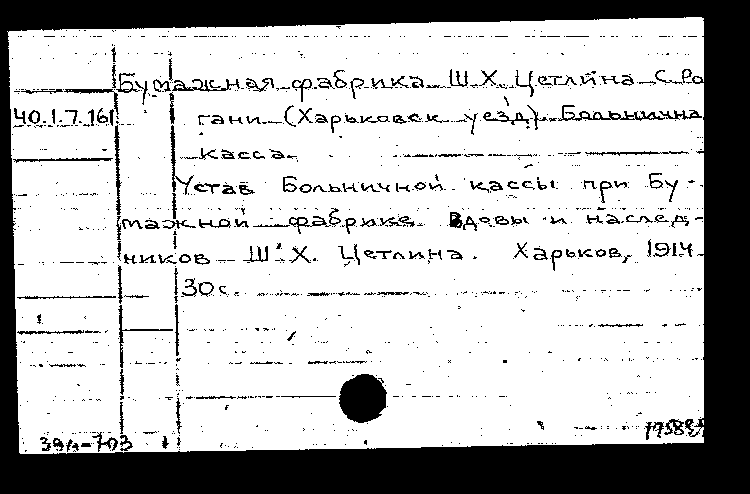 Бумажная фабрика Ш.Х. Цетлина С. Ро
40.1.7.161 гани (Харьковск уезд). Больнична
касса.
Устав Больничной кассы при Бу-
мажной фабрике Вдовы и наслед-
ников Ш.Х. Цетлина. Харьков, 1914
30 с.